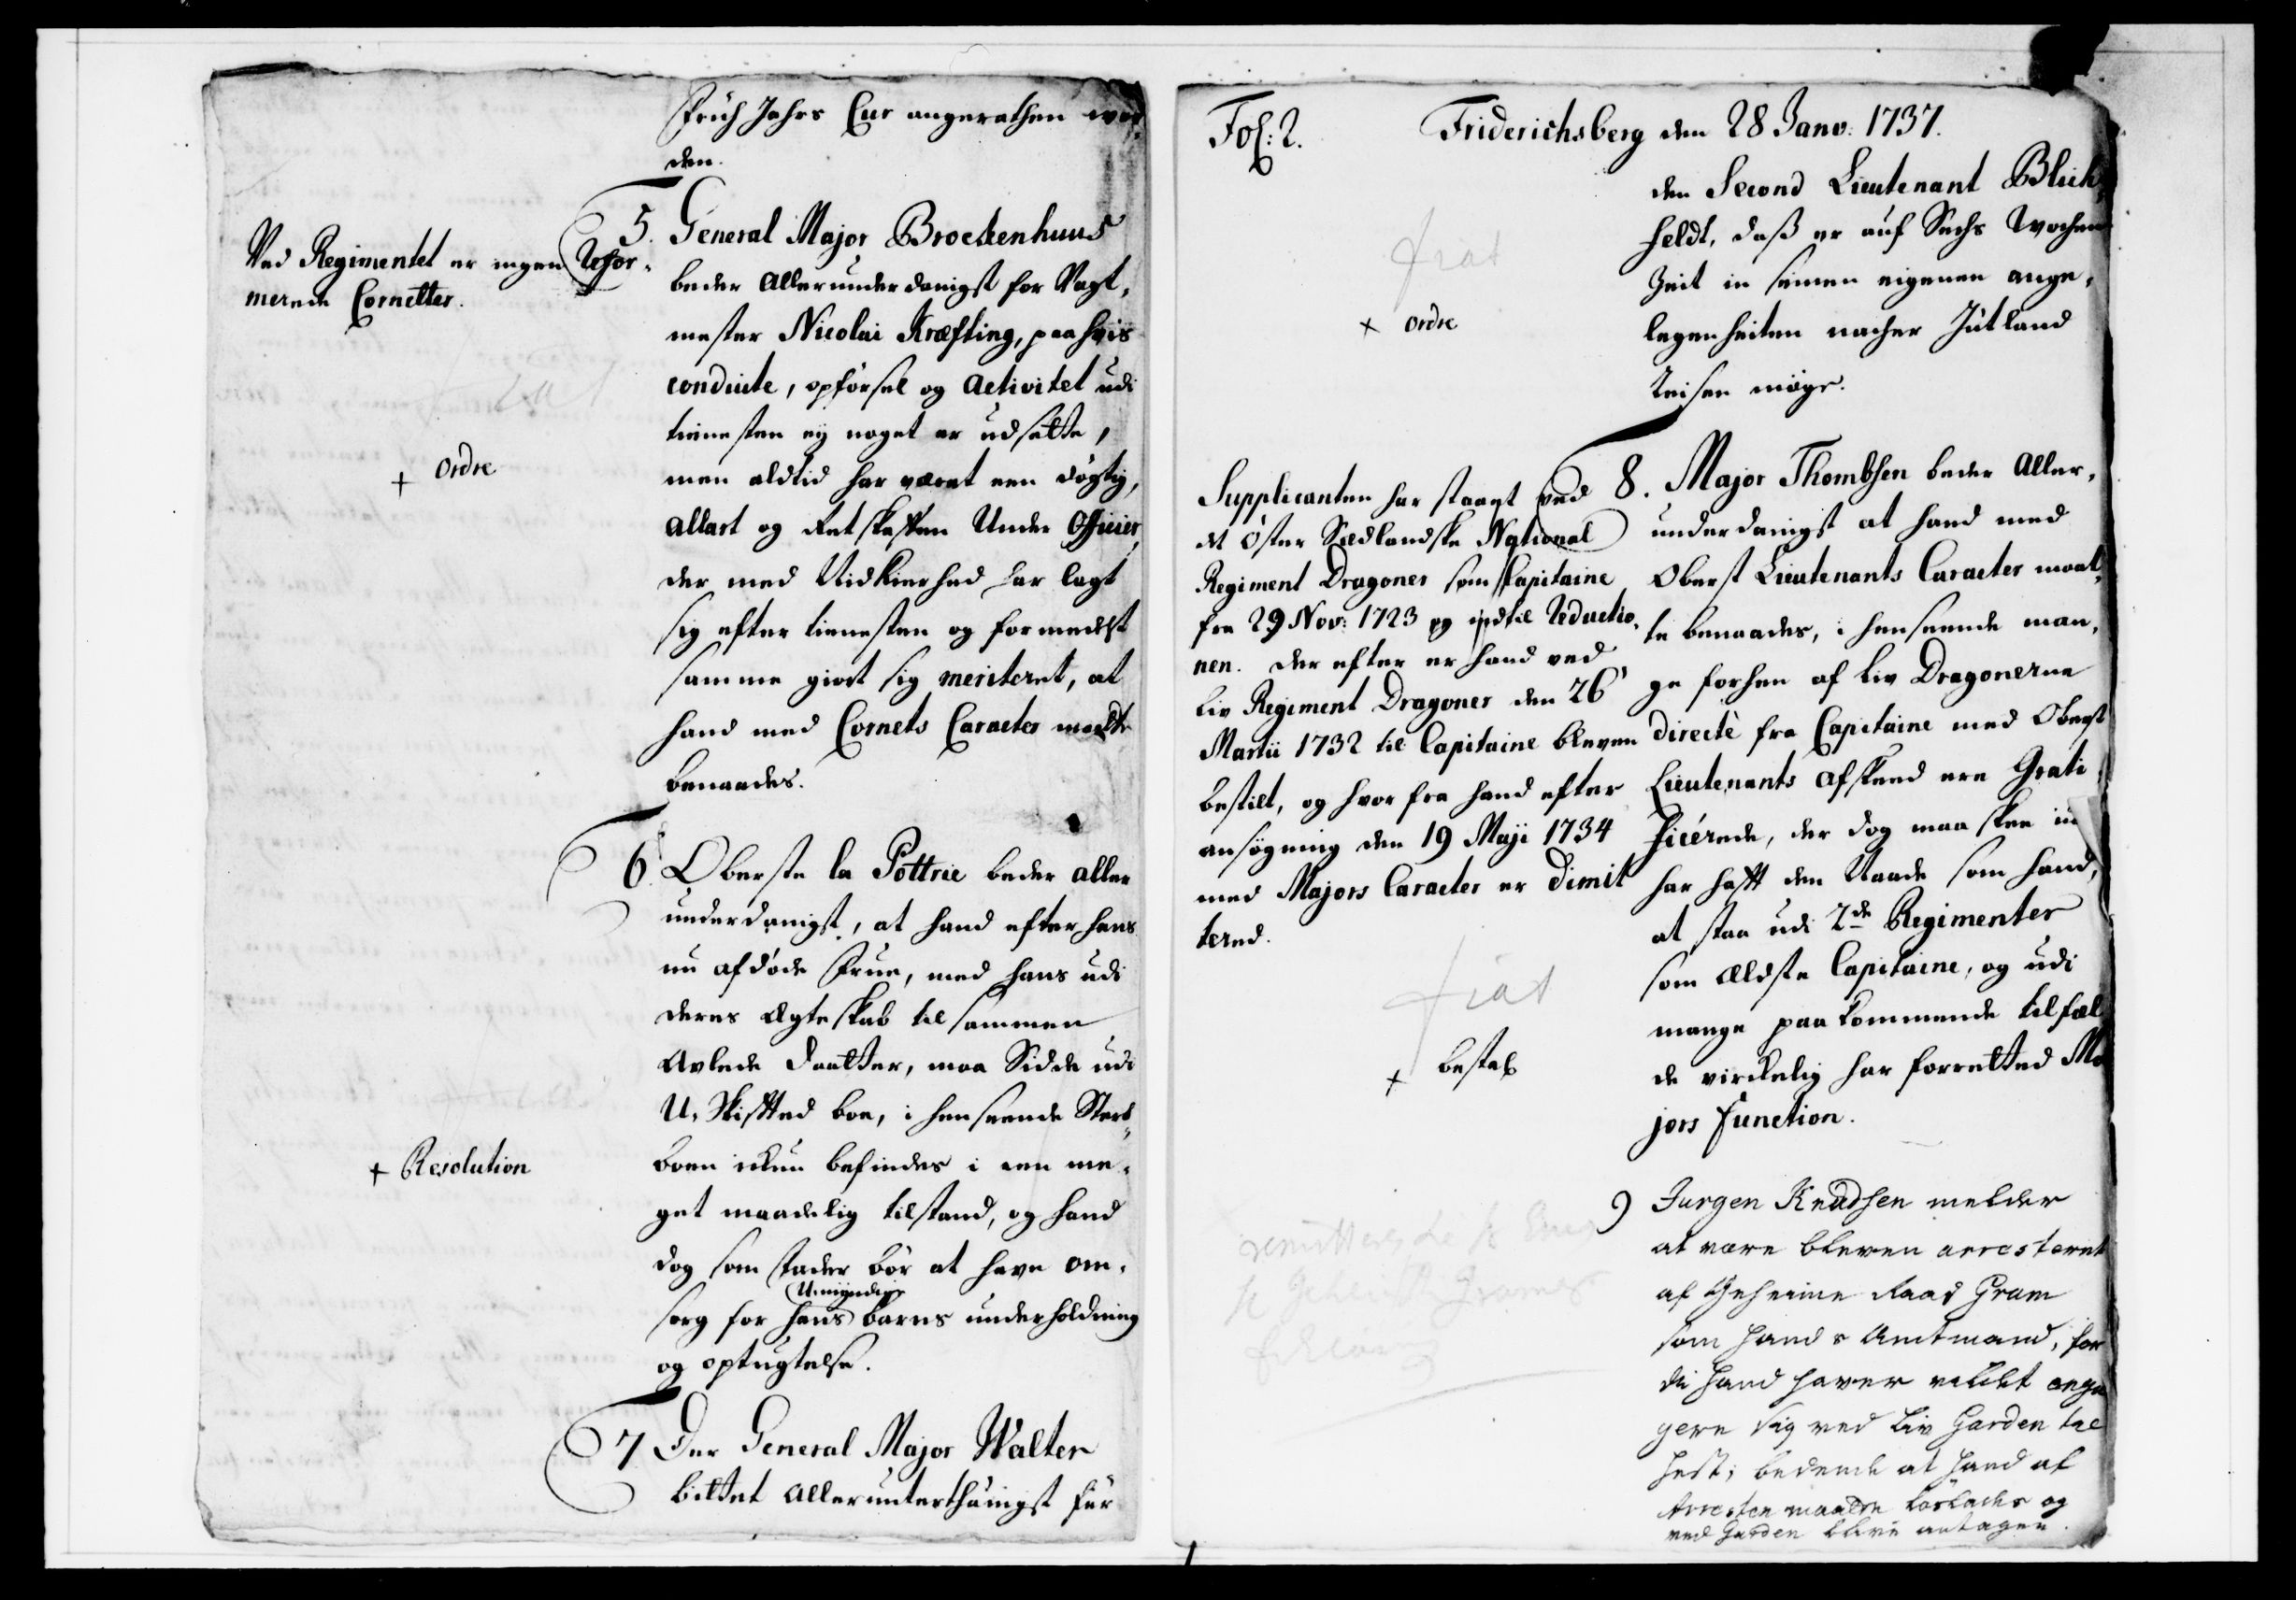 Früh Jahrs Cur angerathen wor¬
den.
5. General Major Brockenhuus
beder Allerunderdanigst for Vagt¬
mester Nicolai Kræfting, paa hvis
conduite, opførsel og activitet udi
tienesten ej noget er udsætte,
men altid har været een døgtig,
allart og Retskaffen Under Officier,
der med Nidkierhed har lagt
sig efter tienesten og formedelst
samme giort sig meriteret, at
hand med Cornets Caracter maatte
benaades.
Ved Regimentet er ingen Refor¬
merede Cornetter.
+ ordre
6. Oberste la Pottrie beder aller
underdanigst, at hand efter hans
nu afdøde Frue, med hans udi
deres Ægteskab til sammen
Avlede Daatter, maa Sidde udi
U-Skifted boe, i henseende Sterb¬
boen ickun befindes i een me¬
get maadelig tilstand, og hand
dog som Fader bør at have om¬
Umyndige
sorg for hans barns underholdning
og optugtelse.
+ Resolution
7. Der General Major Walter
bittet Allerunterthänigst für
Fol: 2.
Friderichsberg den 28 Janv: 1737.
den Second Lieutenant Blich¬
feldt, daß er auf Sechs Wochen
Zeit in seinen eigenen ange¬
legenheiten nacher Jütland
Reisen möge.
fiat
+ ordre
8. Major Thombsen beder Aller¬
underdanigst at hand med
Oberst Lieutenants Caracter maat¬
te benaades, i henseende man¬
ge forhen af Liv Dragonerne
directè fra Capitaine med Oberst
Lieutenants Afskeed ere Grati¬
ficérede, der dog maa skee
har hafft den Naade som hand,
at staa udi 2de Regimenter
som Ældste Capitaine, og udi
mange paakommende tilfæl
de virckelig har forretted Ma
jors function.
Supplicanten har staaet ved
det Øster Siellandske National
Regiment Dragoner som Capitaine
fra 29 Nov: 1723 og indtil Reductio¬
nen. der efter er hand ved
Liv Regiment Dragoner den 26
Martii 1732 til Capitaine bleven
bestilt, og hvor fra hand efter
ansøgning den 19 Maji 1734
med Majors Caracter er Dimit
tered.
fiat
+ bestal
9) Jurgen Knudsen melder
at være bleven arresteret
af Geheime Raad Gram
som hands Amtmand, for
di hand haver villet enga
gere sig ved Liv Garden til
hest; bedende at hand af
Arresten maatte løslades og
ved Garden blive antagen.